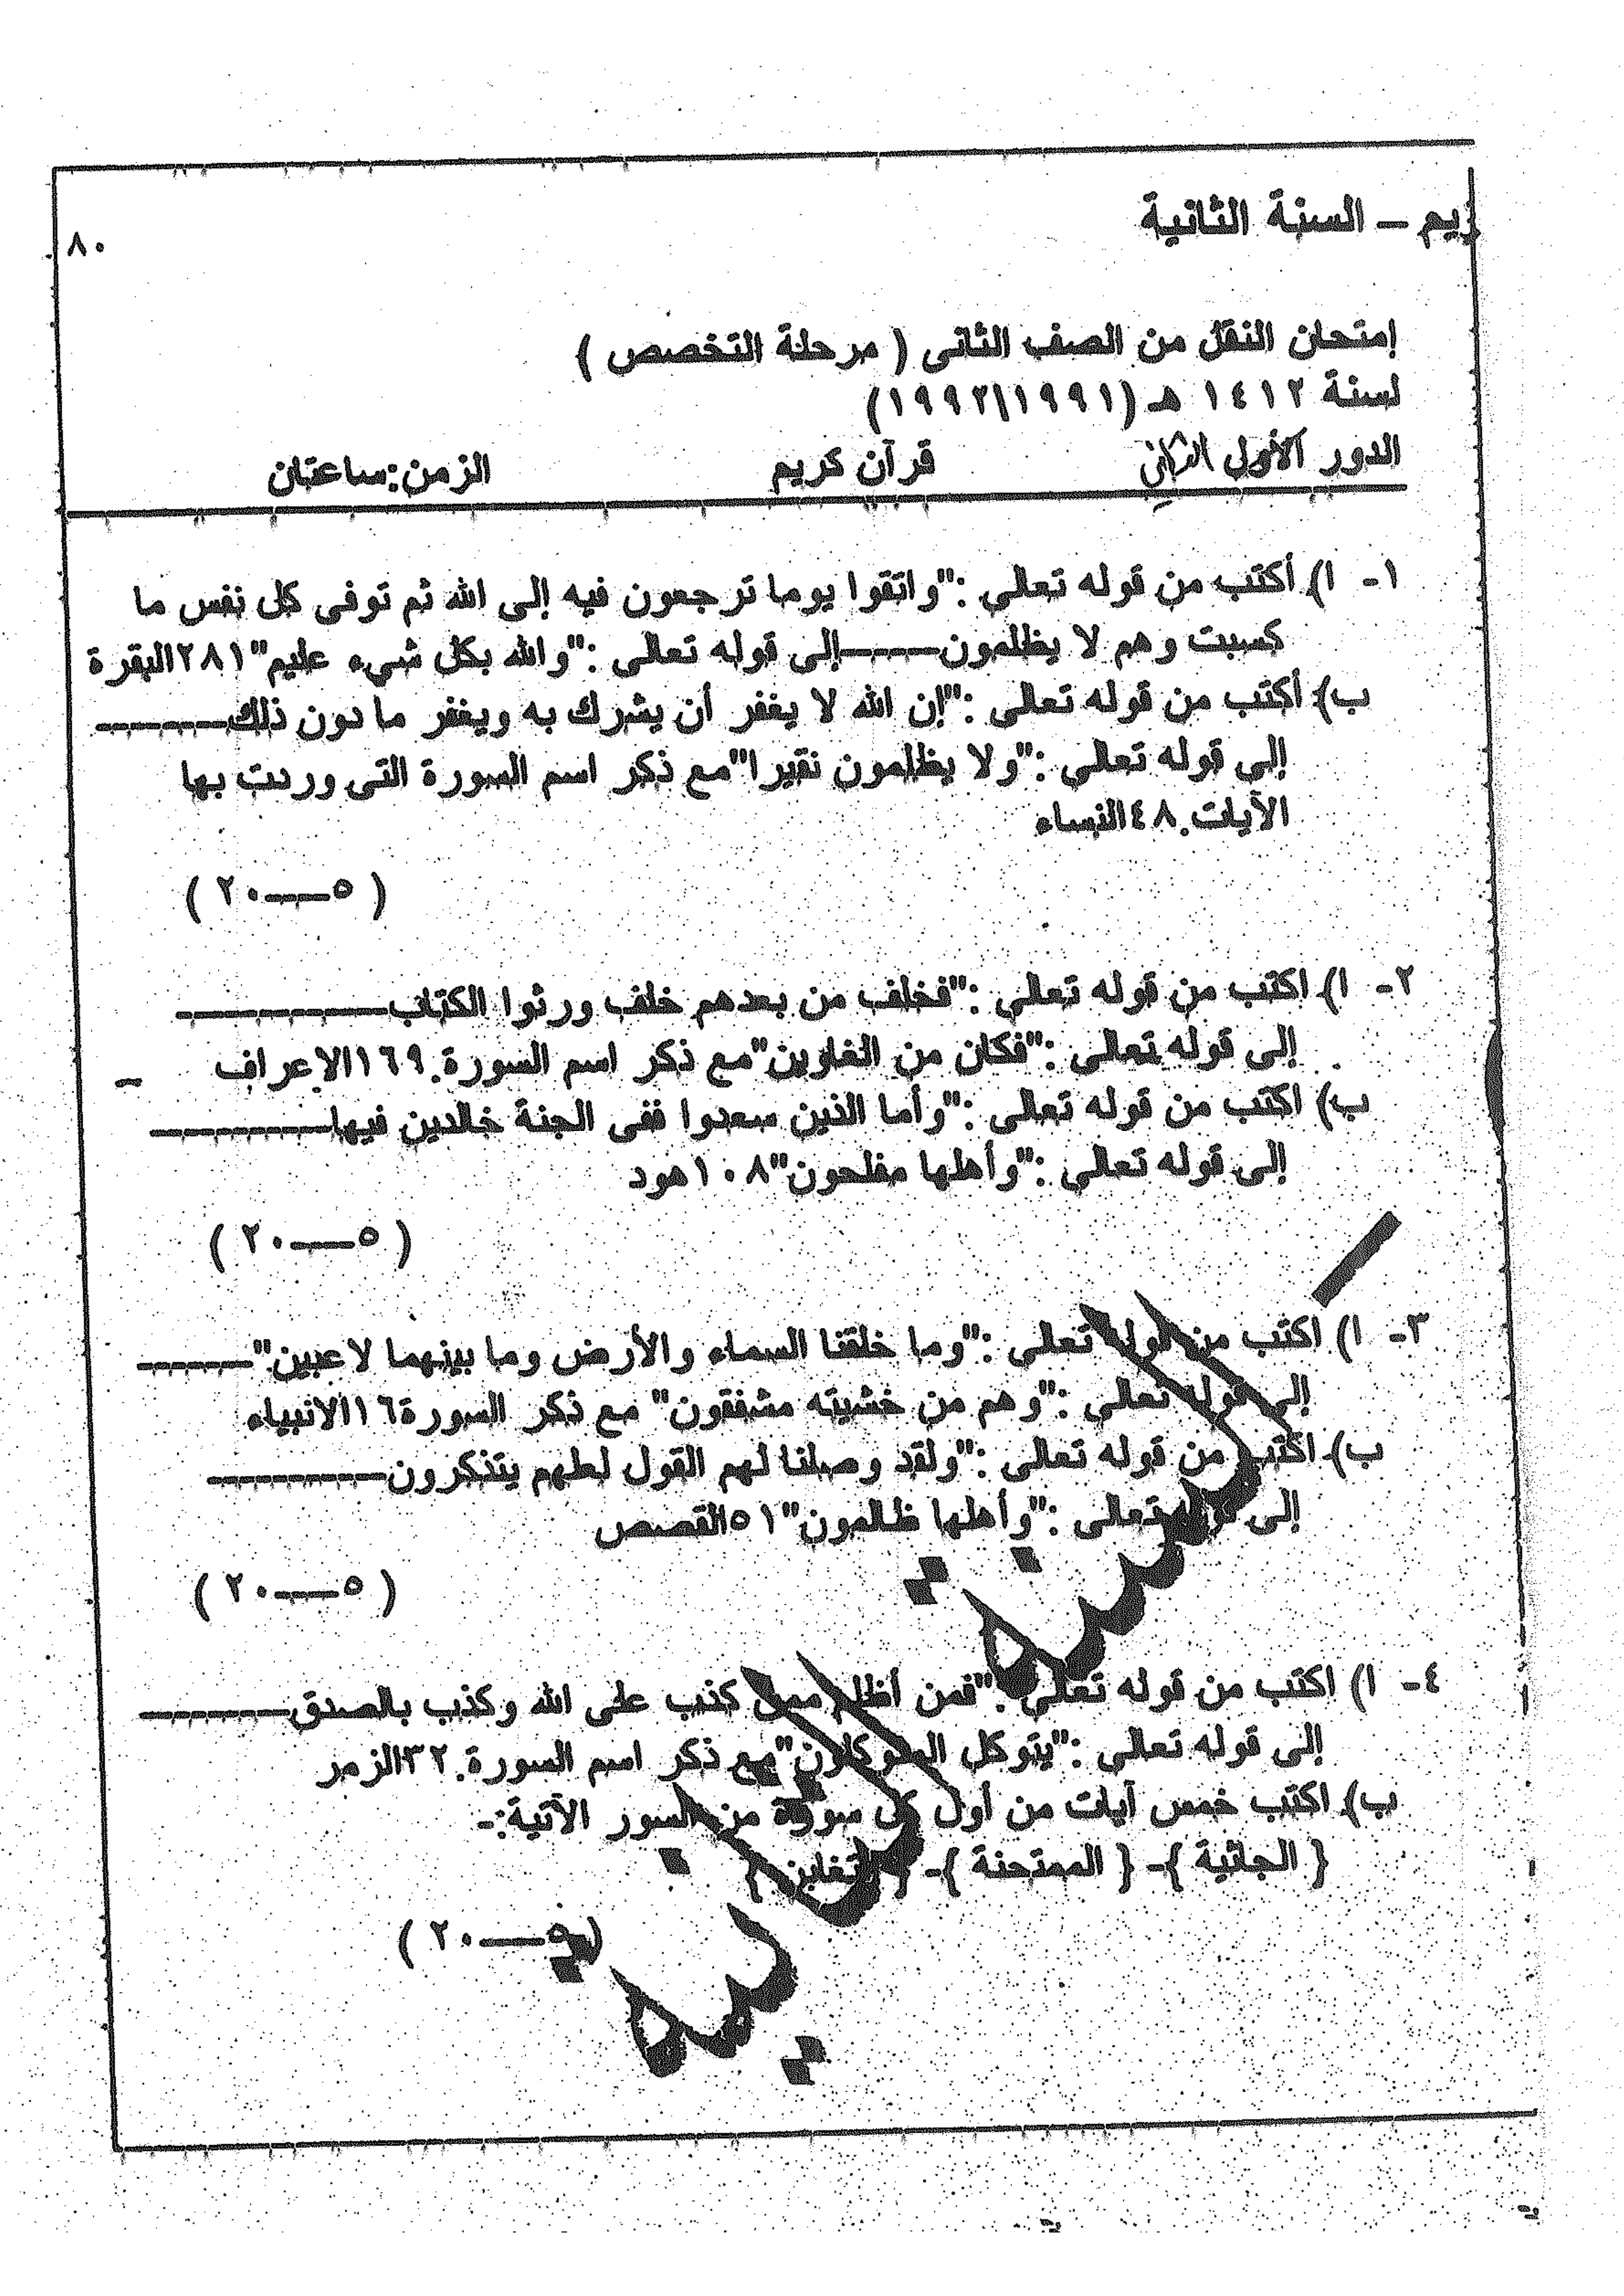 ريم – السنة الثانية
٨٠
إمتحان النقل من الصف الثانى ( مرحلة التخصص )
لسنة ١٤١٢ هـ (١٩٩١\١٩٩٢)
الدور الأول الثاني قرآن كريم الزمن:ساعتان
١- ا) أكتب من قوله تعالى :"واتقوا يوما ترجعون فيه إلى الله ثم توفى كل نفس ما
كسبت وهم لا يظلمون-----إلى قوله تعالى :"والله بكل شيء عليم"٢٨١البقرة
ب) أكتب من قوله تعالى :"إن الله لا يغفر أن يشرك به ويغفر ما دون ذلك--------
إلى قوله تعالى :"ولا يظلمون نقيرا"مع ذكر اسم السورة التى وردت بها
الآيات.٤٨النساء
( ٥----٢٠ )
٢- ا) اكتب من قوله تعالى :"فخلف من بعدهم خلف ورثوا الكتاب-------------
إلى قوله تعالى :"فكان من الغاوين"مع ذكر اسم السورة.١٦٩الاعراف
ب) اكتب من قوله تعالى :"وأما الذين سعدوا ففى الجنة خالدين فيها-----------
إلى قوله تعالى :"وأهلها مفلحون"١٠٨هود
( ٥----٢٠ )
٣- ا) اكتب من قوله تعالى :"وما خلقنا السماء والأرض وما بينهما لاعبين"-------
إلى قوله تعالى :"وهم من خشيته مشفقون" مع ذكر السورة١٦الانبياء
ب) اكتب من قوله تعالى :"ولقد وصلنا لهم القول لعلهم يتذكرون-----------
إلى قوله تعالى :"وأهلها ظالمون"٥١القصص
( ٥----٢٠ )
٤- ا) اكتب من قوله تعالى :"فمن أظلم ممن كذب على الله وكذب بالصدق---------
إلى قوله تعالى :"يتوكل المتوكلون"مع ذكر اسم السورة.٣٢الزمر
ب) اكتب خمس آيات من أول كل سورة من السور الآتية:-
{ الجاثية }- { الممتحنة }- { التغابن }
( ٥----٢٠ )